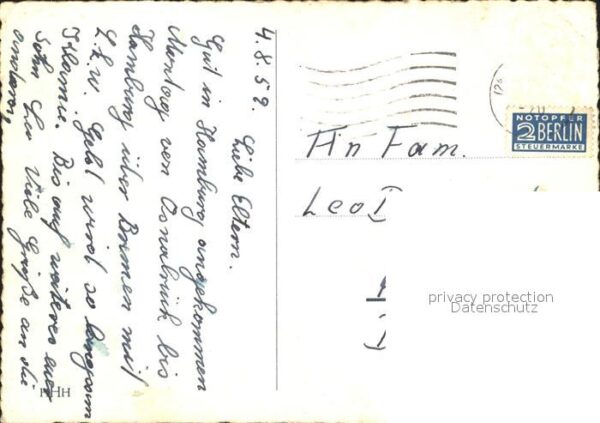 4.8.52.
Liebe Eltern.
Gut in Hamburg angekommen
Montag von Osnabrück bis
Hamburg über Bremen mit
L.K.W. Geld wird so langsam
Klamm. Bis auf weiteres euer
Sohn Leo Viele Grüße an die
anderen,
HHH
An Fam.
Leo
NOTOPFER
2 BERLIN
STEUERMARKE
privacy protection
Datenschutz